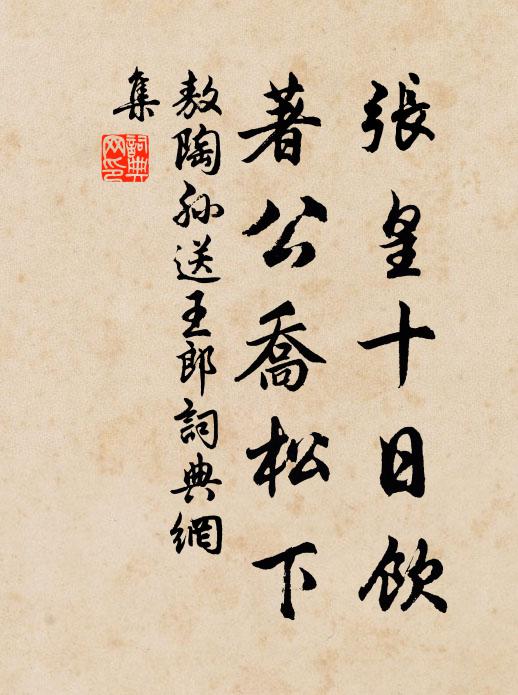 張皇十日飲
著公喬松下
敖陶孙送王郎詞典網
集
詞典網印